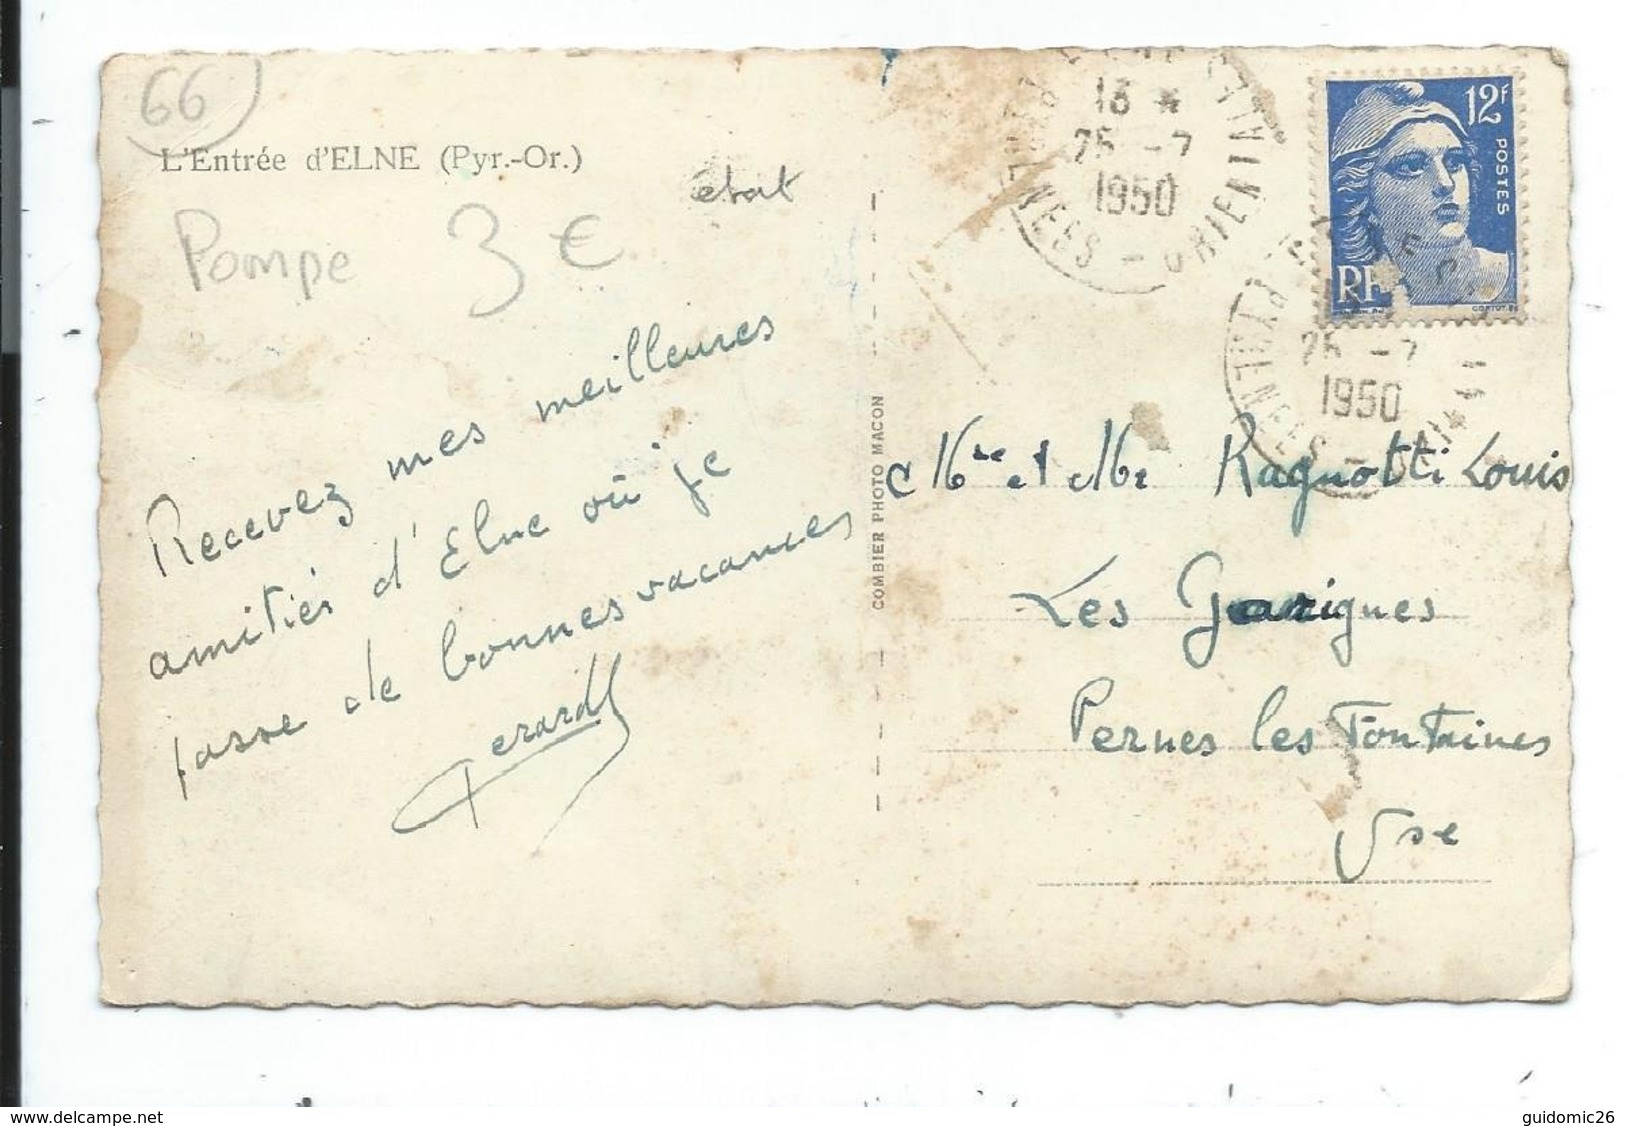 66
L'Entrée d'ELNE (Pyr.-Or.)
Pompe 3 €
état
Recevez mes meilleures
amitiés d'Elne où je
passe de bonnes vacances
Gerard
COMBIER PHOTO MACON
13
25 -7
1950
PYRÉNÉES - ORIENTALES
12F
POSTES
RF
25 -7
1950
Mme et Mr Ragnotti Louis
Les Garigues
Pernes les Fontaines
Vse
www.delcampe.net
guidomic26